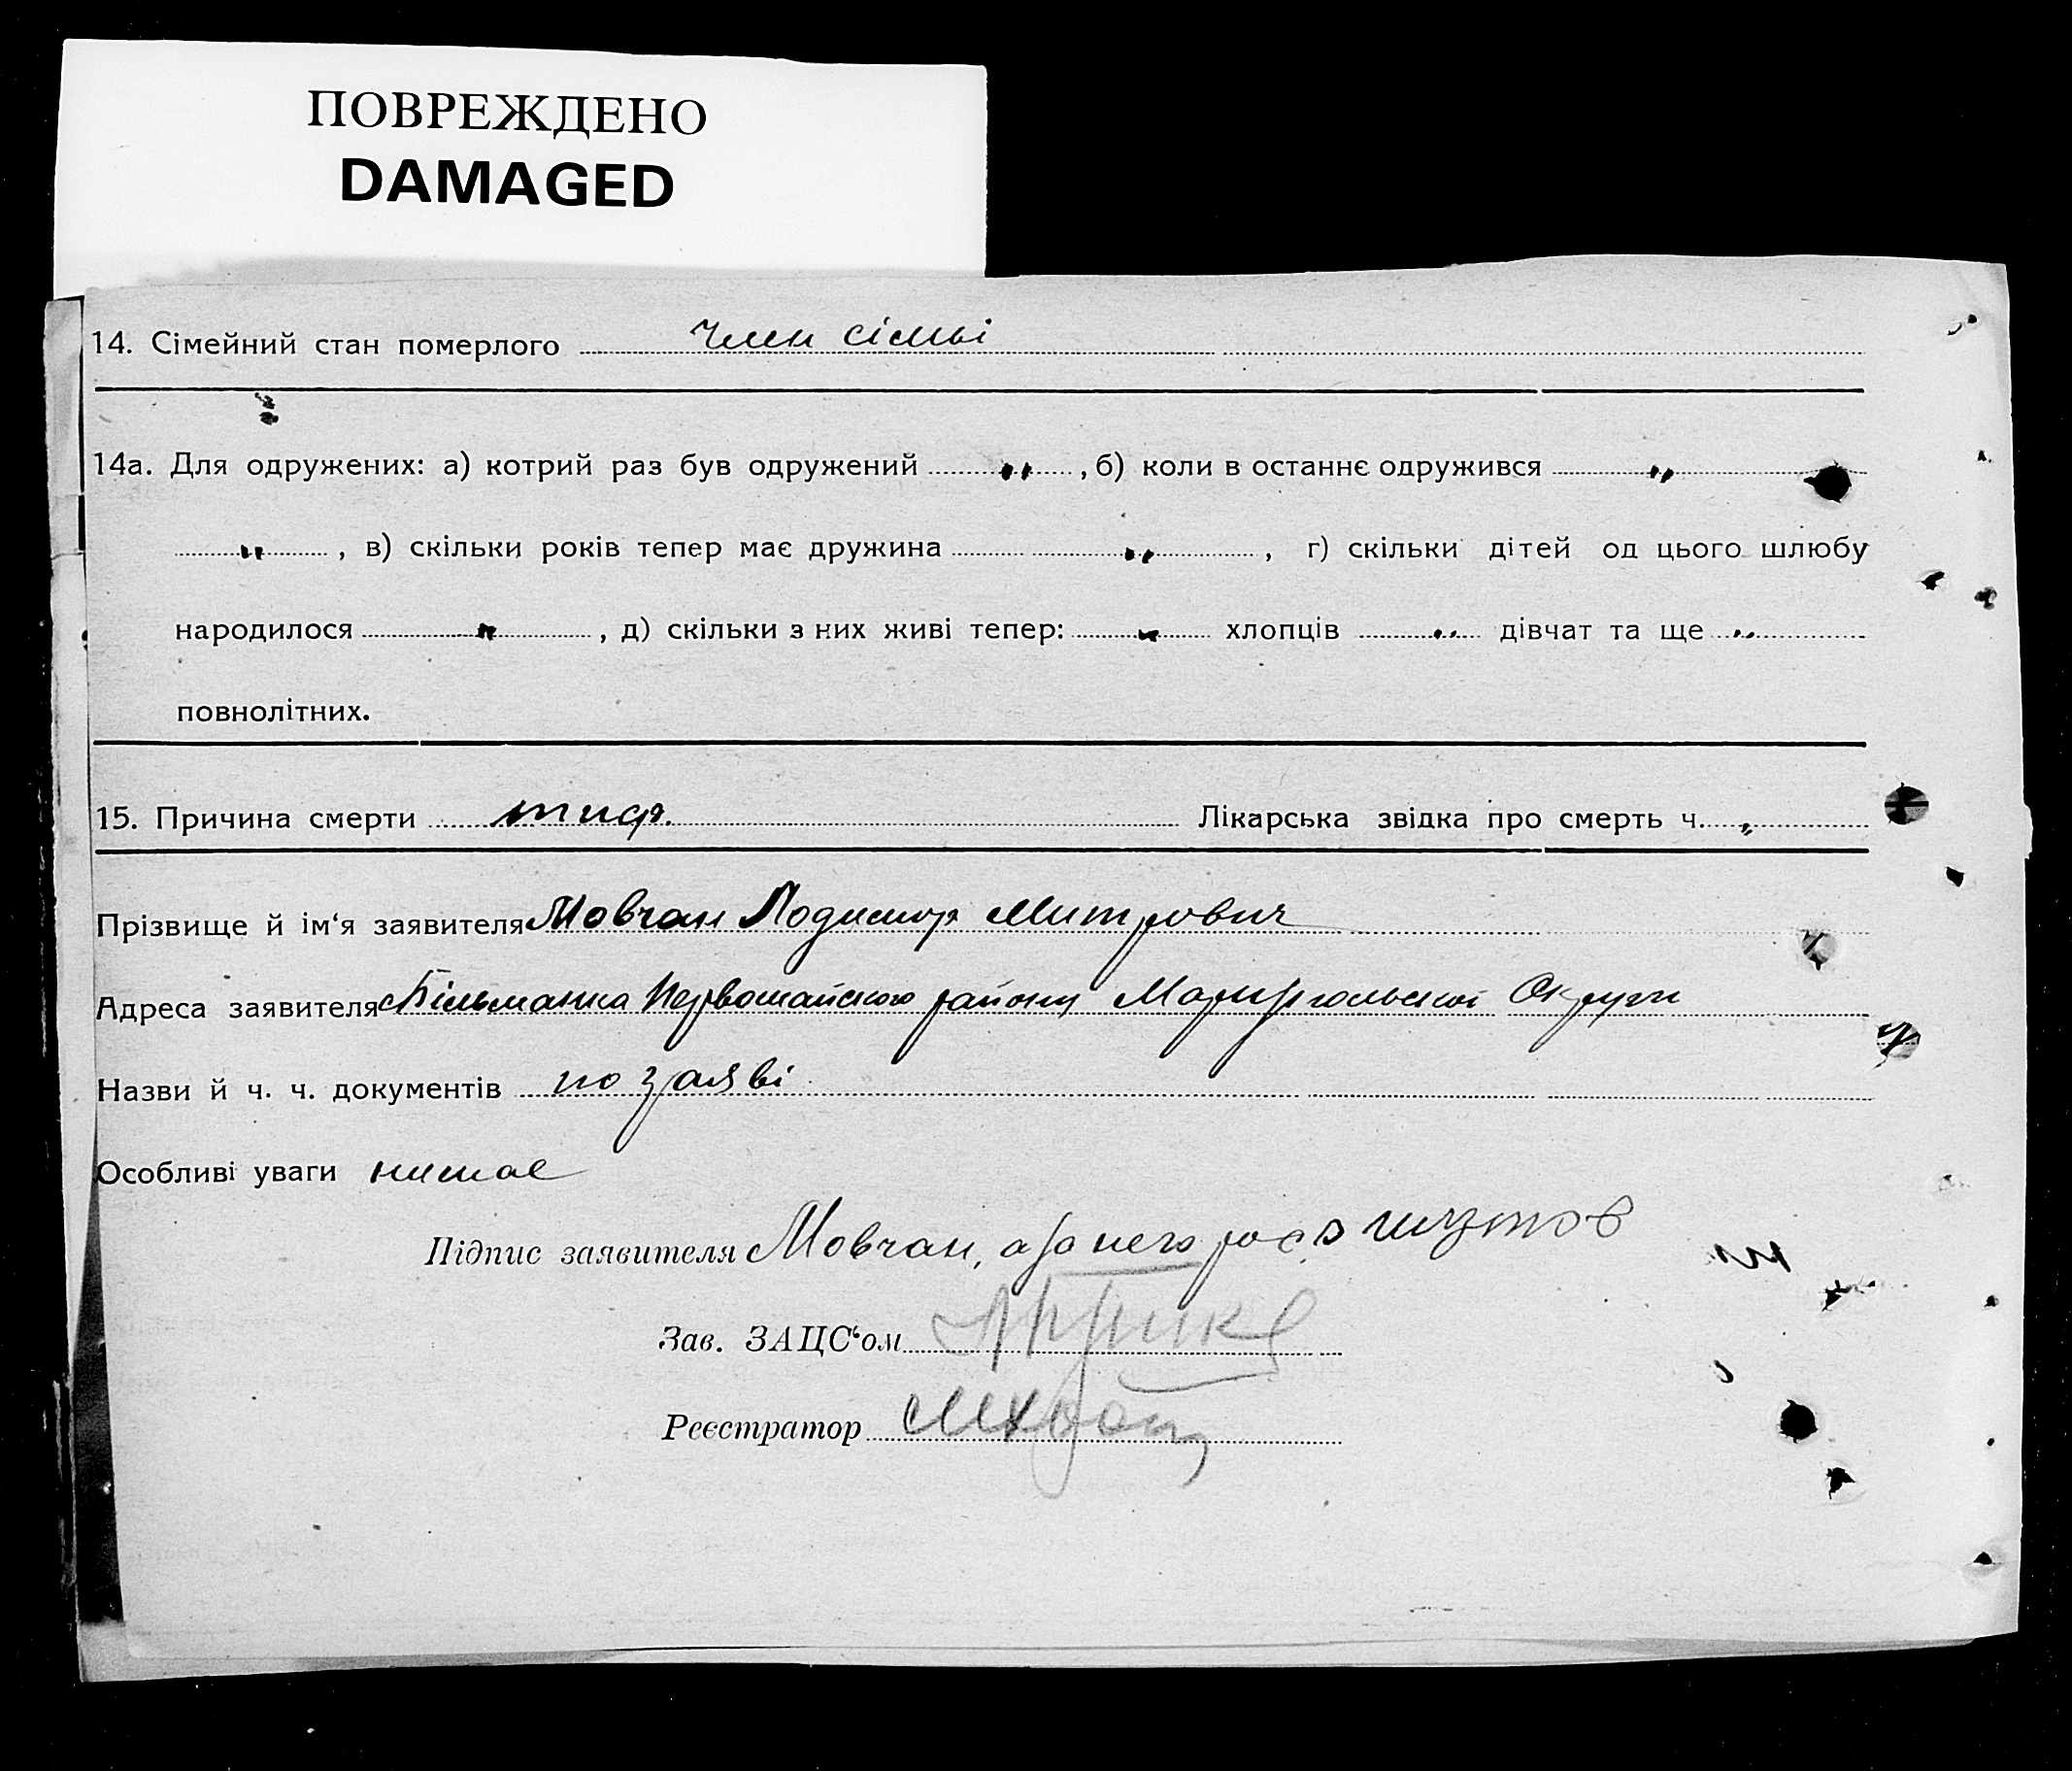 ПОВРЕЖДЕНО
DAMAGED
14. Сімейний стан померлого член сімьі
14а. Для одружених: а) котрий раз був одружений „ , б) коли в останнє одружився „
„ , в) скільки років тепер має дружина „ , г) скільки дітей од цього шлюбу
народилося „ , д) скільки з них живі тепер: „ хлопців „ дівчат та ще „
повнолітних.
15. Причина смерти тиф. Лікарська звідка про смерть ч. „
Прізвище й ім‘я заявителя Мовчан Лодимир Митрович
Адреса заявителя с Більманка Первомайского району Маріупольської Округи
Назви й ч. ч. документів по заяві
Особливі уваги нимає
Підпис заявителя Мовчан, а за него рос.
Зав. ЗАЦС‘ом
Реєстратор